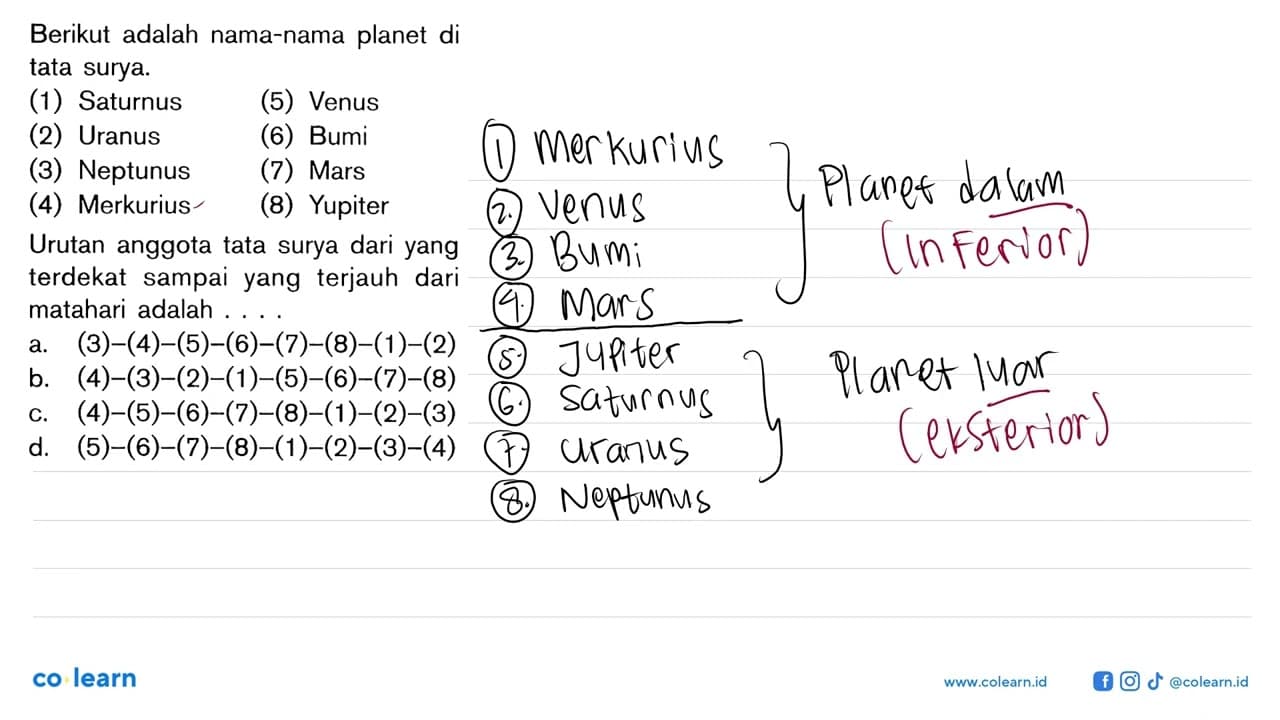 Berikut adalah nama-nama planet di
tata surya.
(1) Saturnus (5) Venus
(2) Uranus (6) Bumi
(3) Neptunus (7) Mars
(4) Merkurius (8) Yupiter
Urutan anggota tata surya dari yang
terdekat sampai yang terjauh dari
matahari adalah . . . .
a. (3)–(4)–(5)–(6)–(7)–(8)–(1)–(2)
b. (4)–(3)–(2)–(1)–(5)–(6)–(7)–(8)
c. (4)–(5)–(6)–(7)–(8)–(1)–(2)–(3)
d. (5)–(6)–(7)–(8)–(1)–(2)–(3)–(4)
1 Merkurius
2. Venus
3. Bumi
4. Mars
Planet dalam
(Inferior)
5. Jupiter
6. Saturnus
7. Uranus
8. Neptunus
Planet luar
(eksterior)
co learn
www.colearn.id
@colearn.id